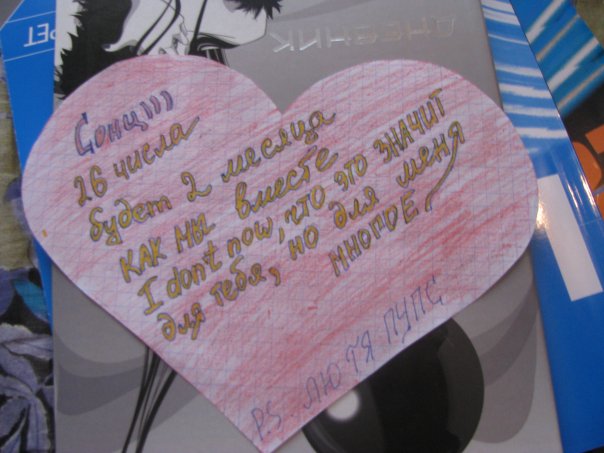 Сонц)))
26 числа
будет 2 месяца
как мы вместе
I don't now, что это значит
для тебя, но для меня
многое
P.S. ЛЮ ТЯ ПУПС
ДНЕВНИК
РЕТ